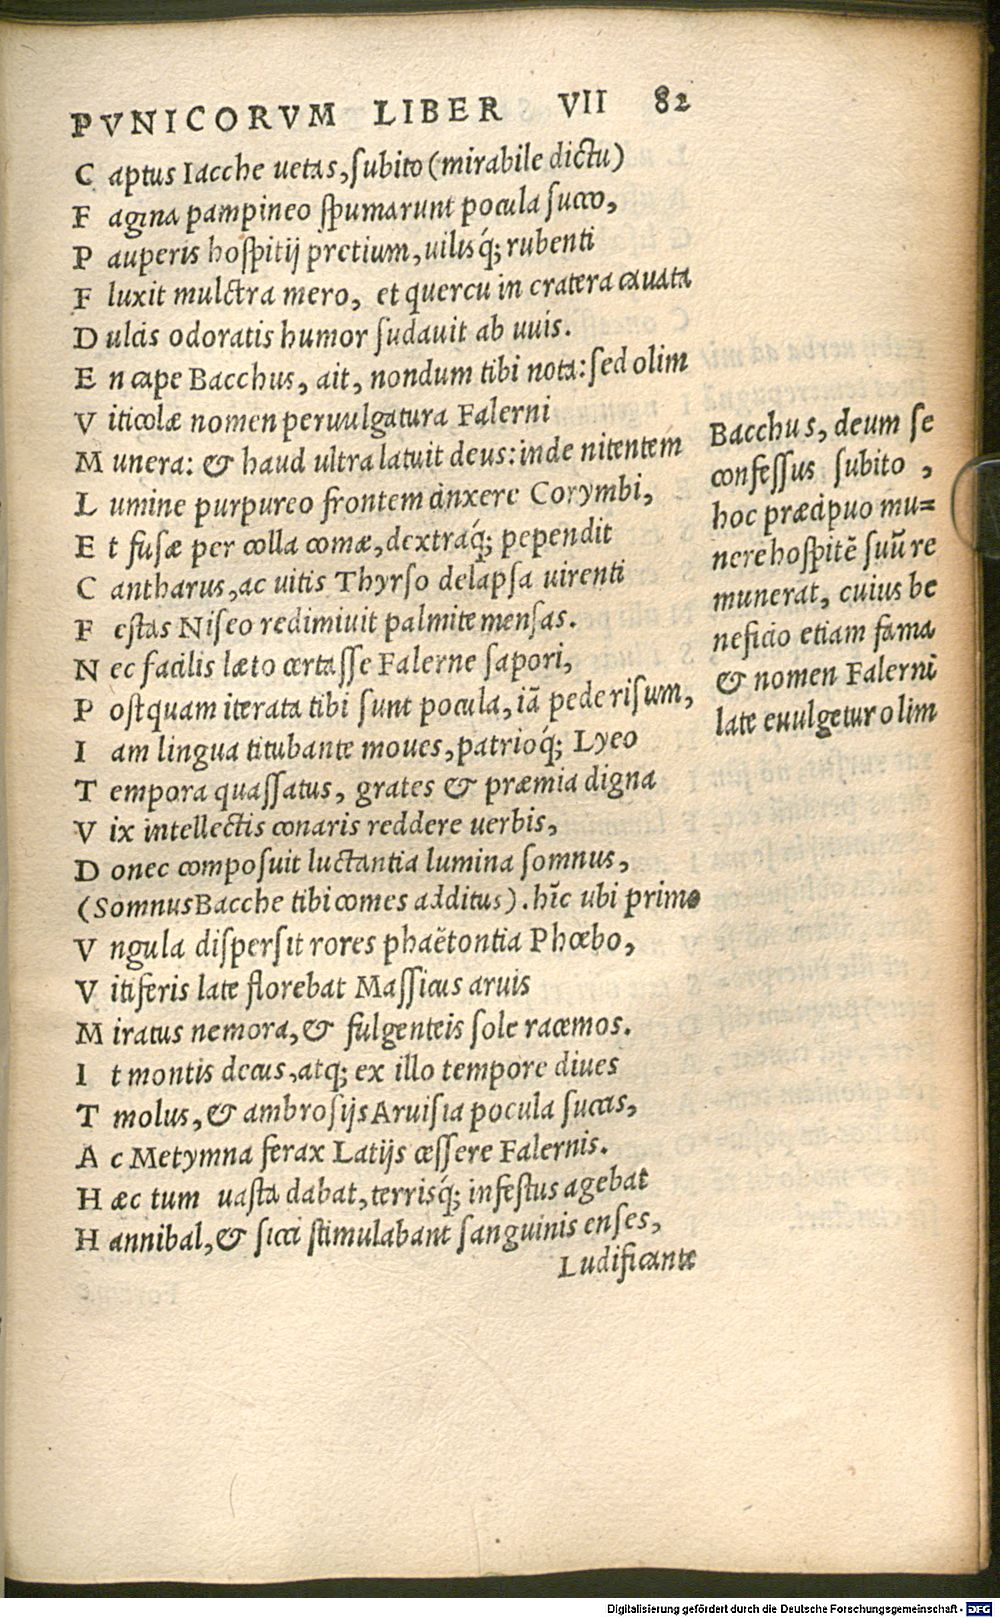 PVNICORVM LIBER VII 82
C aptus Iacche uetas, subito (mirabile dictu)
F agina pampineo spumarunt pocula succo,
P auperis hospitij pretium, uilisq́; rubenti
F luxit mulctra mero, et quercu in cratera cauata
D ulcis odoratis humor sudauit ab uuis.
E n cape Bacchus, ait, nondum tibi nota: sed olim
V iticolæ nomen peruulgatura Falerni
M unera: & haud ultra latuit deus: inde nitentem
L umine purpureo frontem cinxere Corymbi,
E t fusæ per colla comæ, dextraq́; pependit
C antharus, ac uitis Thyrso delapsa uirenti
F estas Niseo redimiuit palmite mensas.
N ec facilis læto certasse Falerne sapori,
P ostquam iterata tibi sunt pocula, iā pede risum,
I am lingua titubante moues, patrioq́; Lyeo
T empora quassatus, grates & præmia digna
V ix intellectis conaris reddere uerbis,
D onec composuit luctantia lumina somnus,
(Somnus Bacche tibi comes additus). hīc ubi primo
V ngula dispersit rores phaëtontia Phœbo,
V itiferis late florebat Massicus aruis
M iratus nemora, & fulgenteis sole racemos.
I t montis decus, atq; ex illo tempore diues
T molus, & ambrosijs Aruisia pocula succis,
A c Metymna ferax Latijs cessere Falernis.
H æc tum uasta dabat, terrisq́; infestus agebat
H annibal, & sicci stimulabant sanguinis enses,
Ludificante
Bacchus, deum se
confessus subito ,
hoc præcipuo mu=
nere hospitē suū re
munerat, cuius be
neficio etiam fama
& nomen Falerni
late euulgetur olim
Digitalisierung gefördert durch die Deutsche Forschungsgemeinschaft - DFG